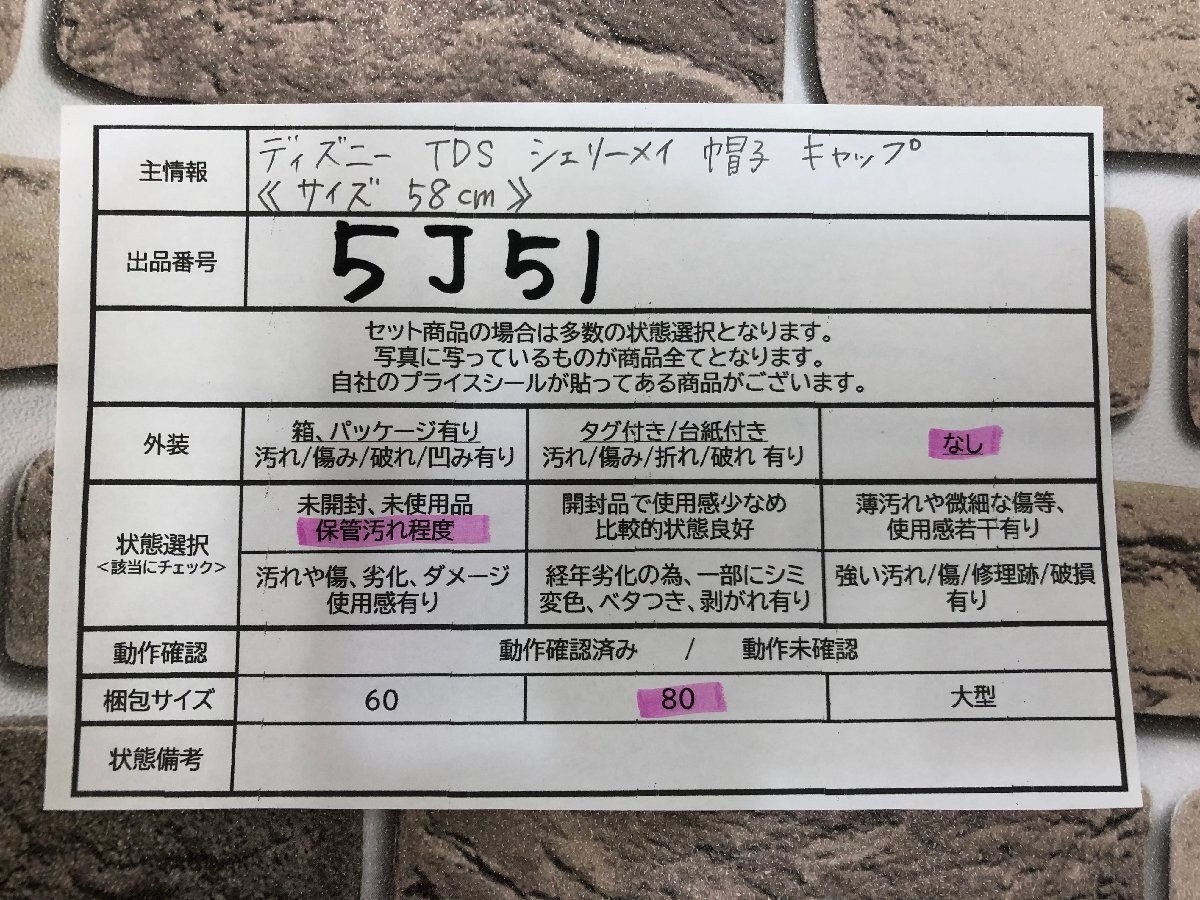 主情報
ディズニー TDS シェリーメイ 帽子 キャップ
≪サイズ 58cm≫
出品番号
5J51
セット商品の場合は多数の状態選択となります。
写真に写っているものが商品全てとなります。
自社のプライスシールが貼ってある商品がございます。
外装
箱、パッケージ有り
汚れ/傷み/破れ/凹み有り
タグ付き/台紙付き
汚れ/傷み/折れ/破れ 有り
なし
状態選択
<該当にチェック>
未開封、未使用品
保管汚れ程度
開封品で使用感少なめ
比較的状態良好
薄汚れや微細な傷等、
使用感若干有り
汚れや傷、劣化、ダメージ
使用感有り
経年劣化の為、一部にシミ
変色、ベタつき、剥がれ有り
強い汚れ/傷/修理跡/破損
有り
動作確認
動作確認済み / 動作未確認
梱包サイズ
60
80
大型
状態備考